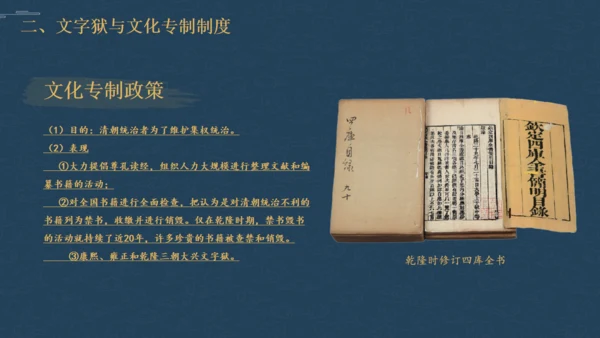 二、文字狱与文化专制制度
文化专制政策
（1）目的：清朝统治者为了维护集权统治。
（2）表现
①大力提倡尊孔读经，组织人力大规模进行整理文献和编
纂书籍的活动；
②对全国书籍进行全面检查，把认为是对清朝统治不利的
书籍列为禁书，收缴并进行销毁。仅在乾隆时期，禁书毁书
的活动就持续了近20年，许多珍贵的书籍被查禁和销毁。
③康熙、雍正和乾隆三朝大兴文字狱。
四库目录
九十
欽定四庫全書簡明目錄
乾隆时修订四库全书